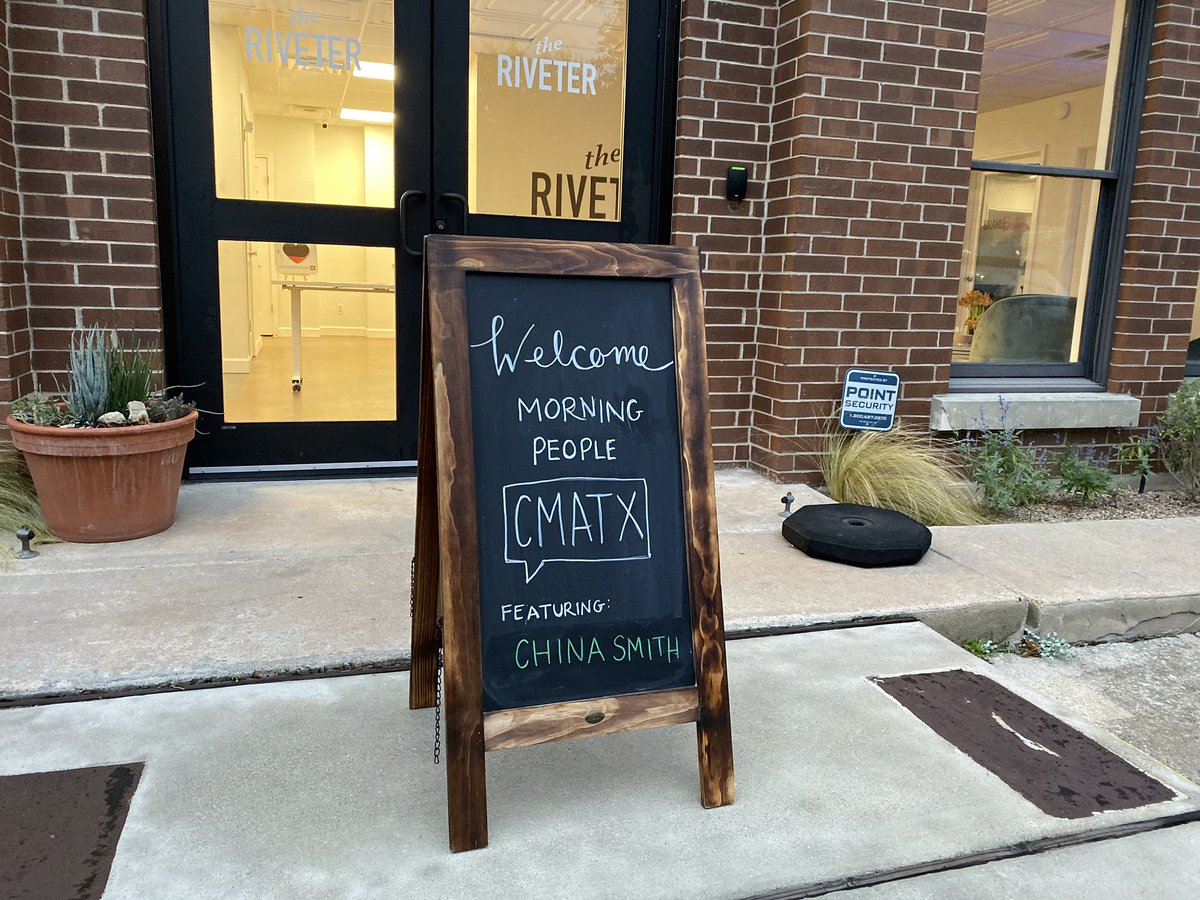 the
RIVETER
the
RIVETER
the
RIVET
Welcome
MORNING
PEOPLE
CMATX
FEATURING:
CHINA SMITH
PROTECTED BY
POINT
SECURITY